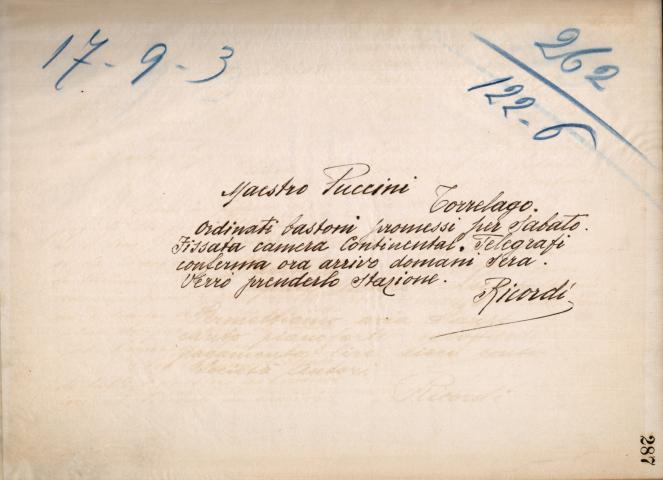 17-9-3
262
122-6
Maestro Puccini
Torrelago.
Ordinati bastoni promessi per Sabato.
Fissata camera Continental. Telegrafi
conferma ora arrivo domani sera.
Verrò prenderlo Stazione.
Ricordi
pagamento lire dieci
Società Autori
Ricordi
287